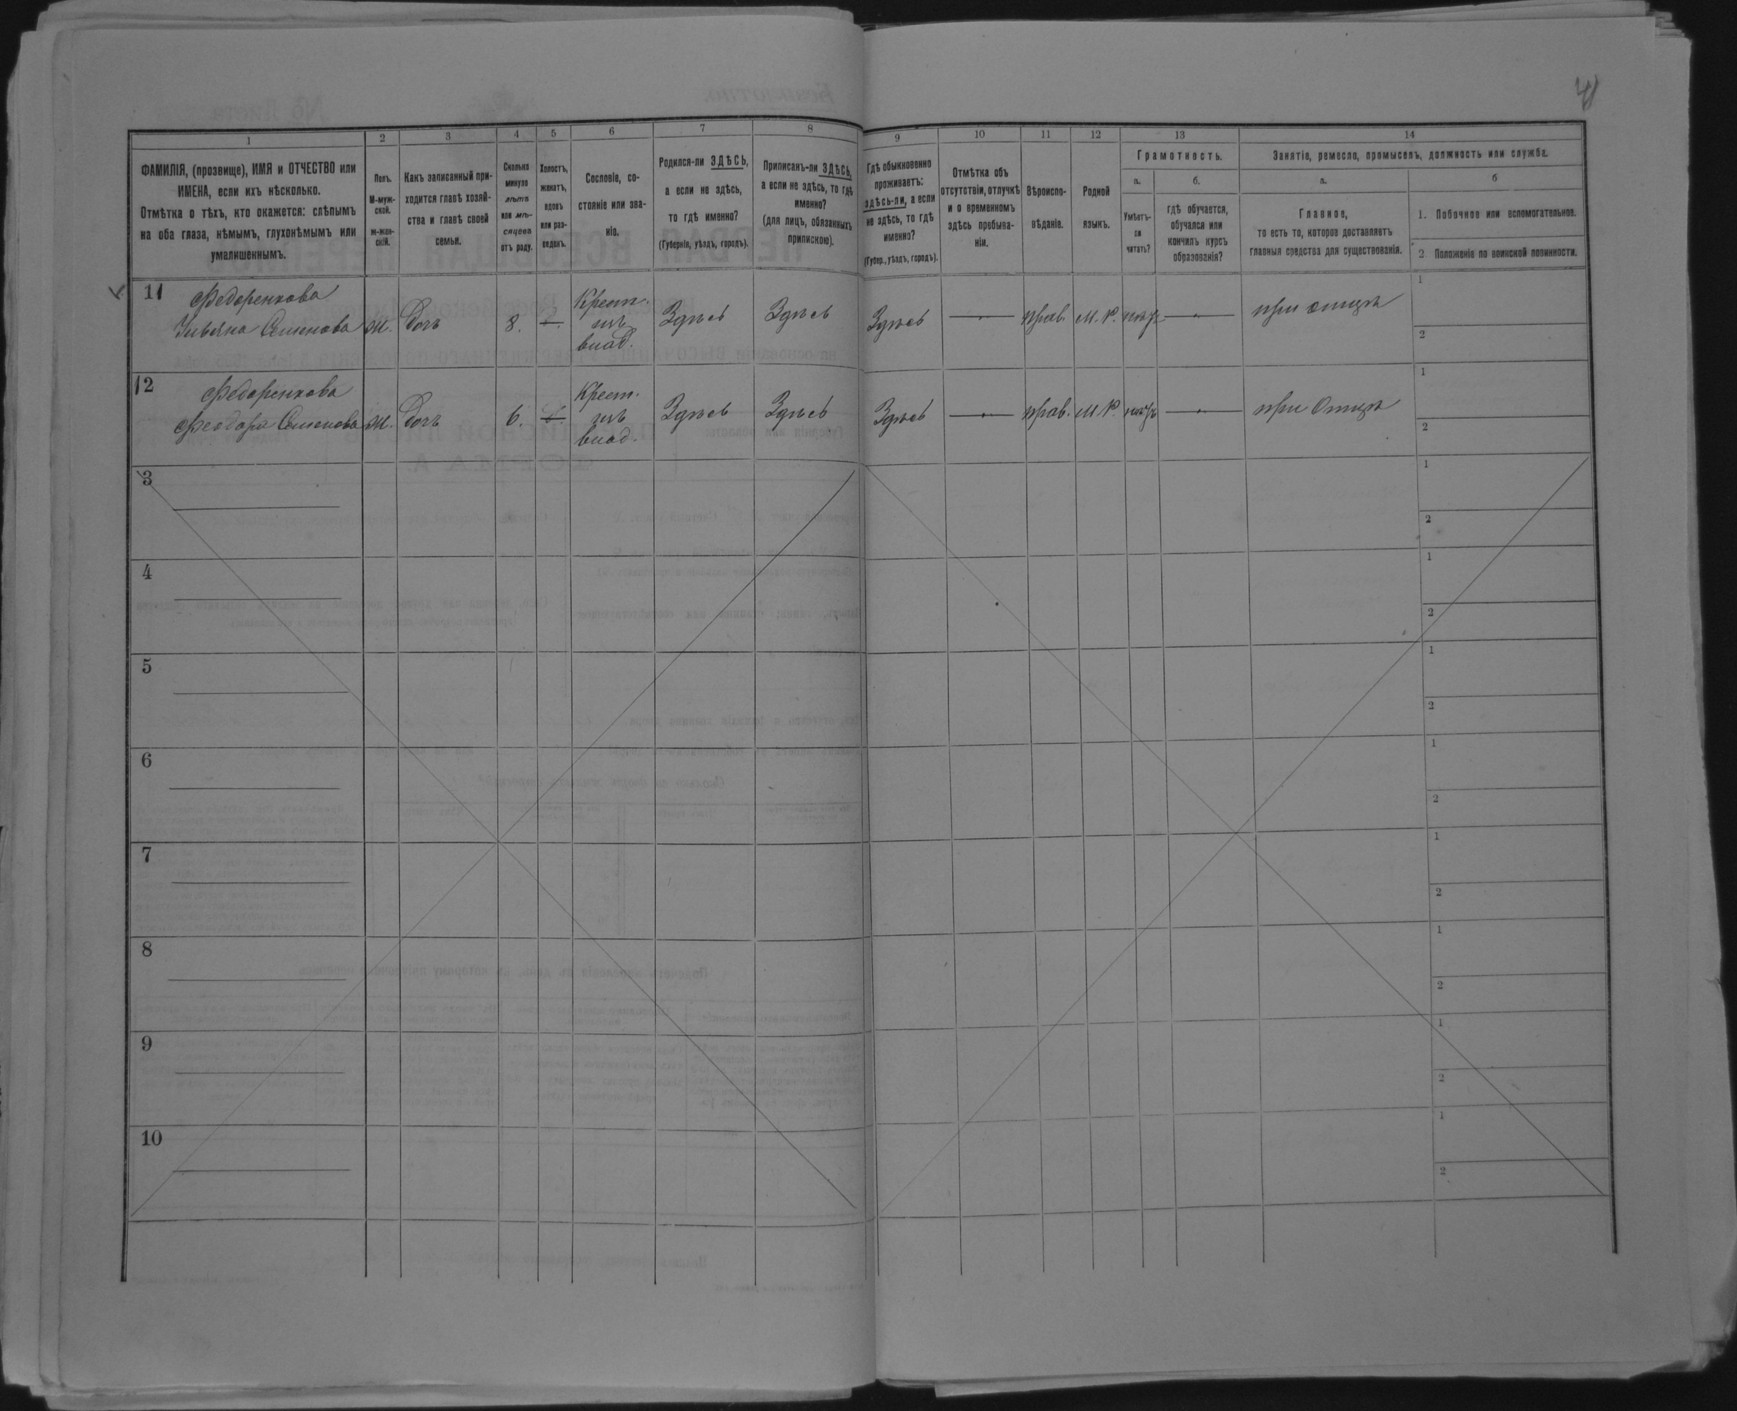 4
1 2 3 4 5 6 7 8 9 10 11 12 13 14
ФАМИЛІЯ, (прозвище), ИМЯ и ОТЧЕСТВО или
ИМЕНА, если ихъ нѣсколько.
Отмѣтка о тѣхъ, кто окажется: слѣпымъ
на оба глаза, нѣмымъ, глухонѣмымъ или
умалишеннымъ.
Полъ.
М-муж-
ской.
ж-жен-
скій.
Какъ записанный при-
ходится главѣ хозяй-
ства и главѣ своей
семьи.
Сколько
минуло
лѣтъ
или мѣ-
сяцевъ
отъ роду.
Холостъ,
женатъ,
вдовъ
или раз-
веденъ.
Сословіе, со-
стояніе или зва-
ніе.
Родился-ли ЗДѢСЬ,
а если не здѣсь,
то гдѣ именно?
(Губернія, уѣздъ, городъ).
Приписанъ-ли ЗДѢСЬ,
а если не здѣсь, то гдѣ
именно?
(для лицъ, обязанныхъ
припискою).
Гдѣ обыкновенно
проживаетъ:
здѣсь-ли, а если
не здѣсь, то гдѣ
именно?
(Губер., уѣздъ, городъ).
Отмѣтка объ
отсутствіи, отлучкѣ
и о временномъ
здѣсь пребыва-
ніи.
Вѣроиспо-
вѣданіе.
Родной
языкъ.
Грамотность.
а.
Умѣетъ-
ли
читать?
б.
гдѣ обучается,
обучался или
кончилъ курсъ
образованія?
Занятіе, ремесло, промыселъ, должность или служба.
а.
Главное,
то есть то, которое доставляетъ
главныя средства для существованія.
б
1. Побочное или вспомогательное.
2 Положеніе по воинской повинности.
11 Федоренкова
Ульяна Семенова ж. Дочь 8. Крест. изъ влад. Здѣсь Здѣсь Здѣсь — прав. М. Р. — при отцѣ 1
2
12 Федоренкова
Феодора Семенова ж. Дочь 6. Крест. изъ влад. Здѣсь Здѣсь Здѣсь — прав. М Р. — при Отцѣ 1
2
3 1
2
4 1
2
5 1
2
6 1
2
7 1
2
8 1
2
9 1
2
10 1
2